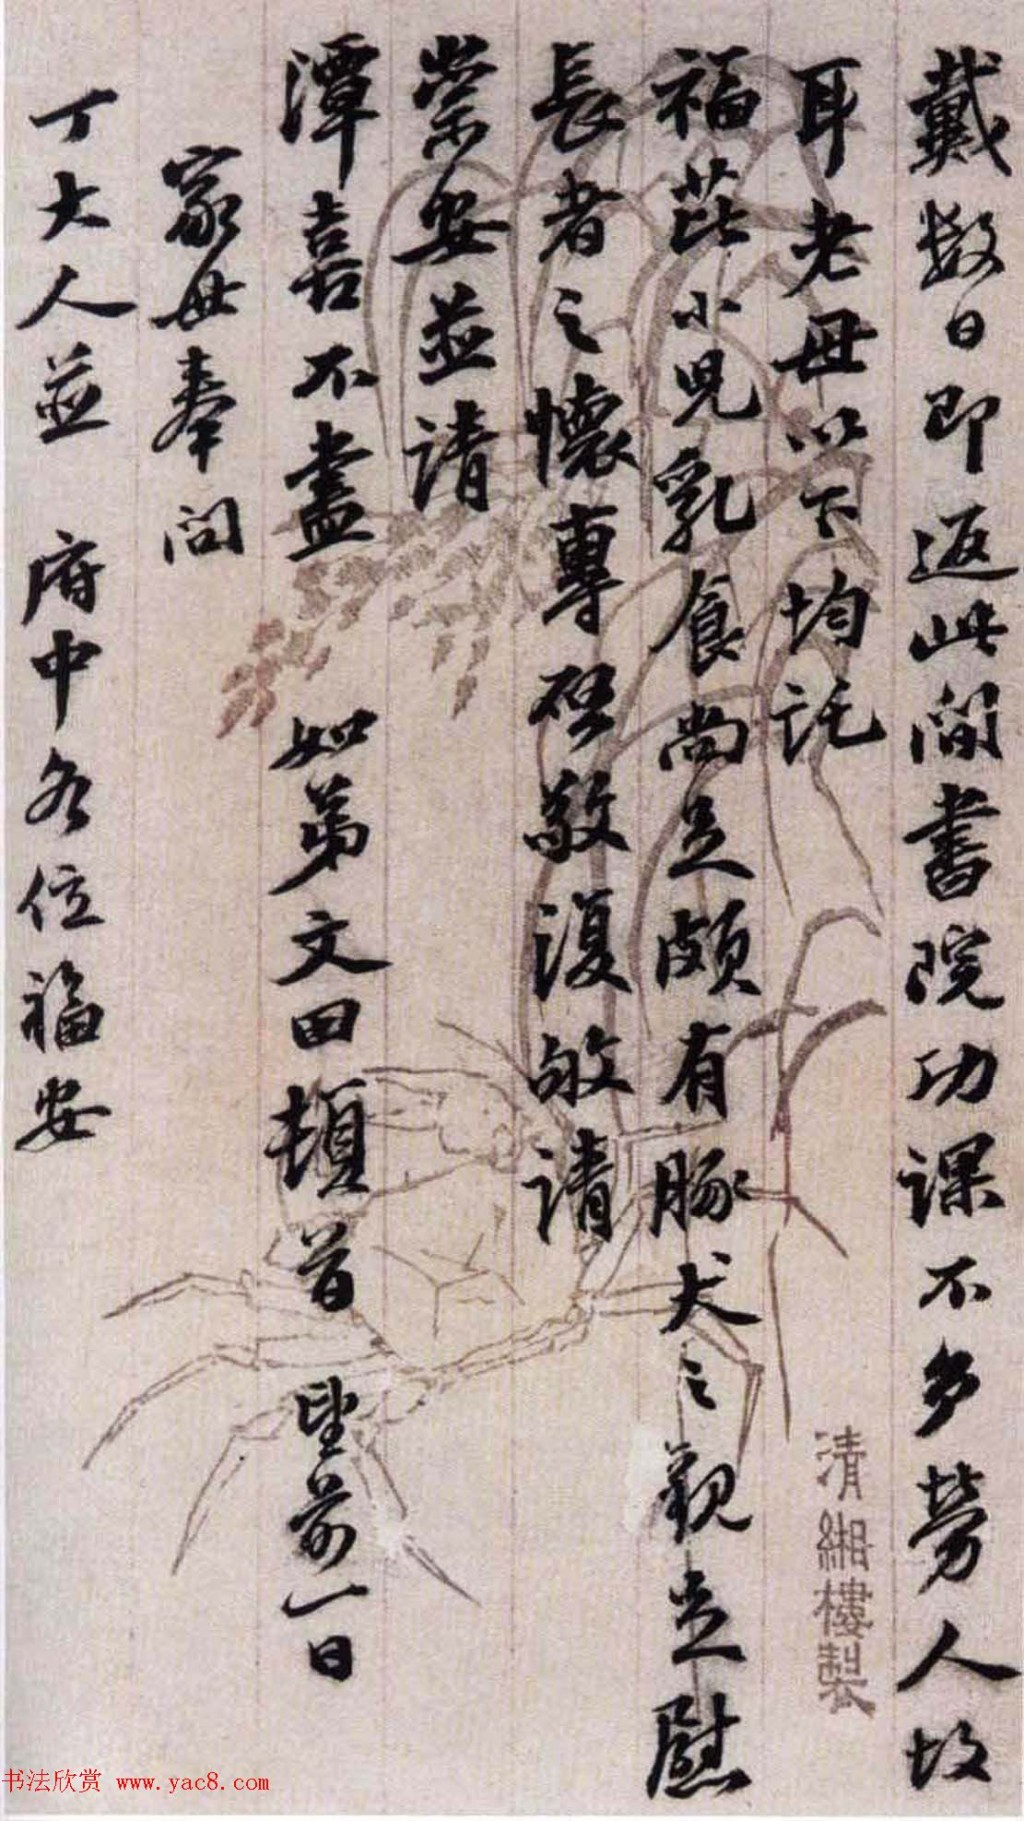 戴数日即返此间書院功課不多劳人故
耳老母以下均託
福茈小児乳食尚足頗有豚犬之観足慰
長者之懷專啓敬復敬請
崇安並請
潭喜不盡 如弟文田頓首 望前一日
家母奉问
丁大人並 府中各位福安
清緗樓製
书法欣赏 www.yac8.com